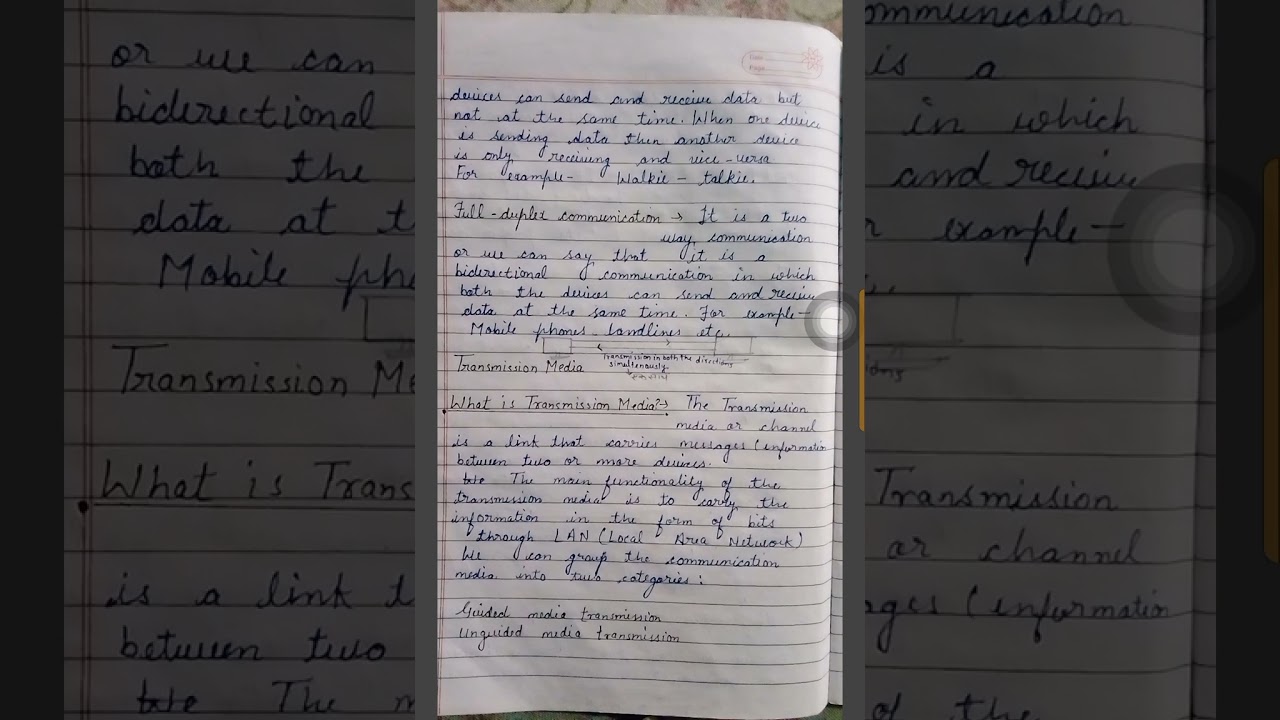 devices can send and receive data but
not at the same time. When one device
is sending data then another device
is only receiving and vice-versa
For example- Walkie-talkie.
Full-duplex communication → It is a two
way communication
or we can say that it is a
biderectional communication in which
both the devices can send and receive
data at the same time. For example-
Mobile phones landlines etc.
Transmission in both the directions
simultenously.
Transmission Media
What is Transmission Media?→ The Transmission
media or channel
is a link that carries messages (information
between two or more devices.
The main functionality of the
transmission media is to carry the
information in the form of bits
through LAN (Local Area Network)
We can group the communication
media into two categories:
Guided media transmission
Unguided media transmission